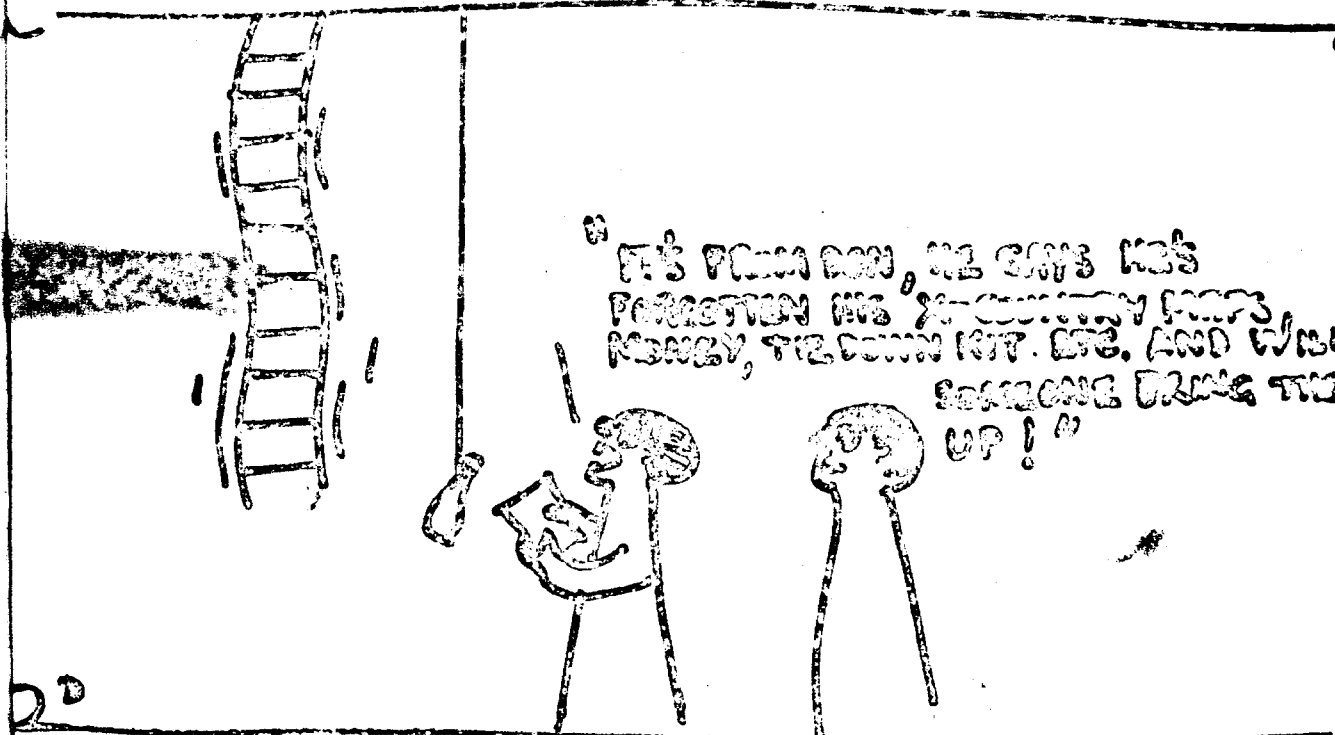 "IT'S FROM DON, HE SAYS HE'S
FORGOTTEN HIS X-COUNTRY MAPS,
MONEY, TIE DOWN KIT. ETC. AND WILL
SOMEONE BRING THE
UP!"
D